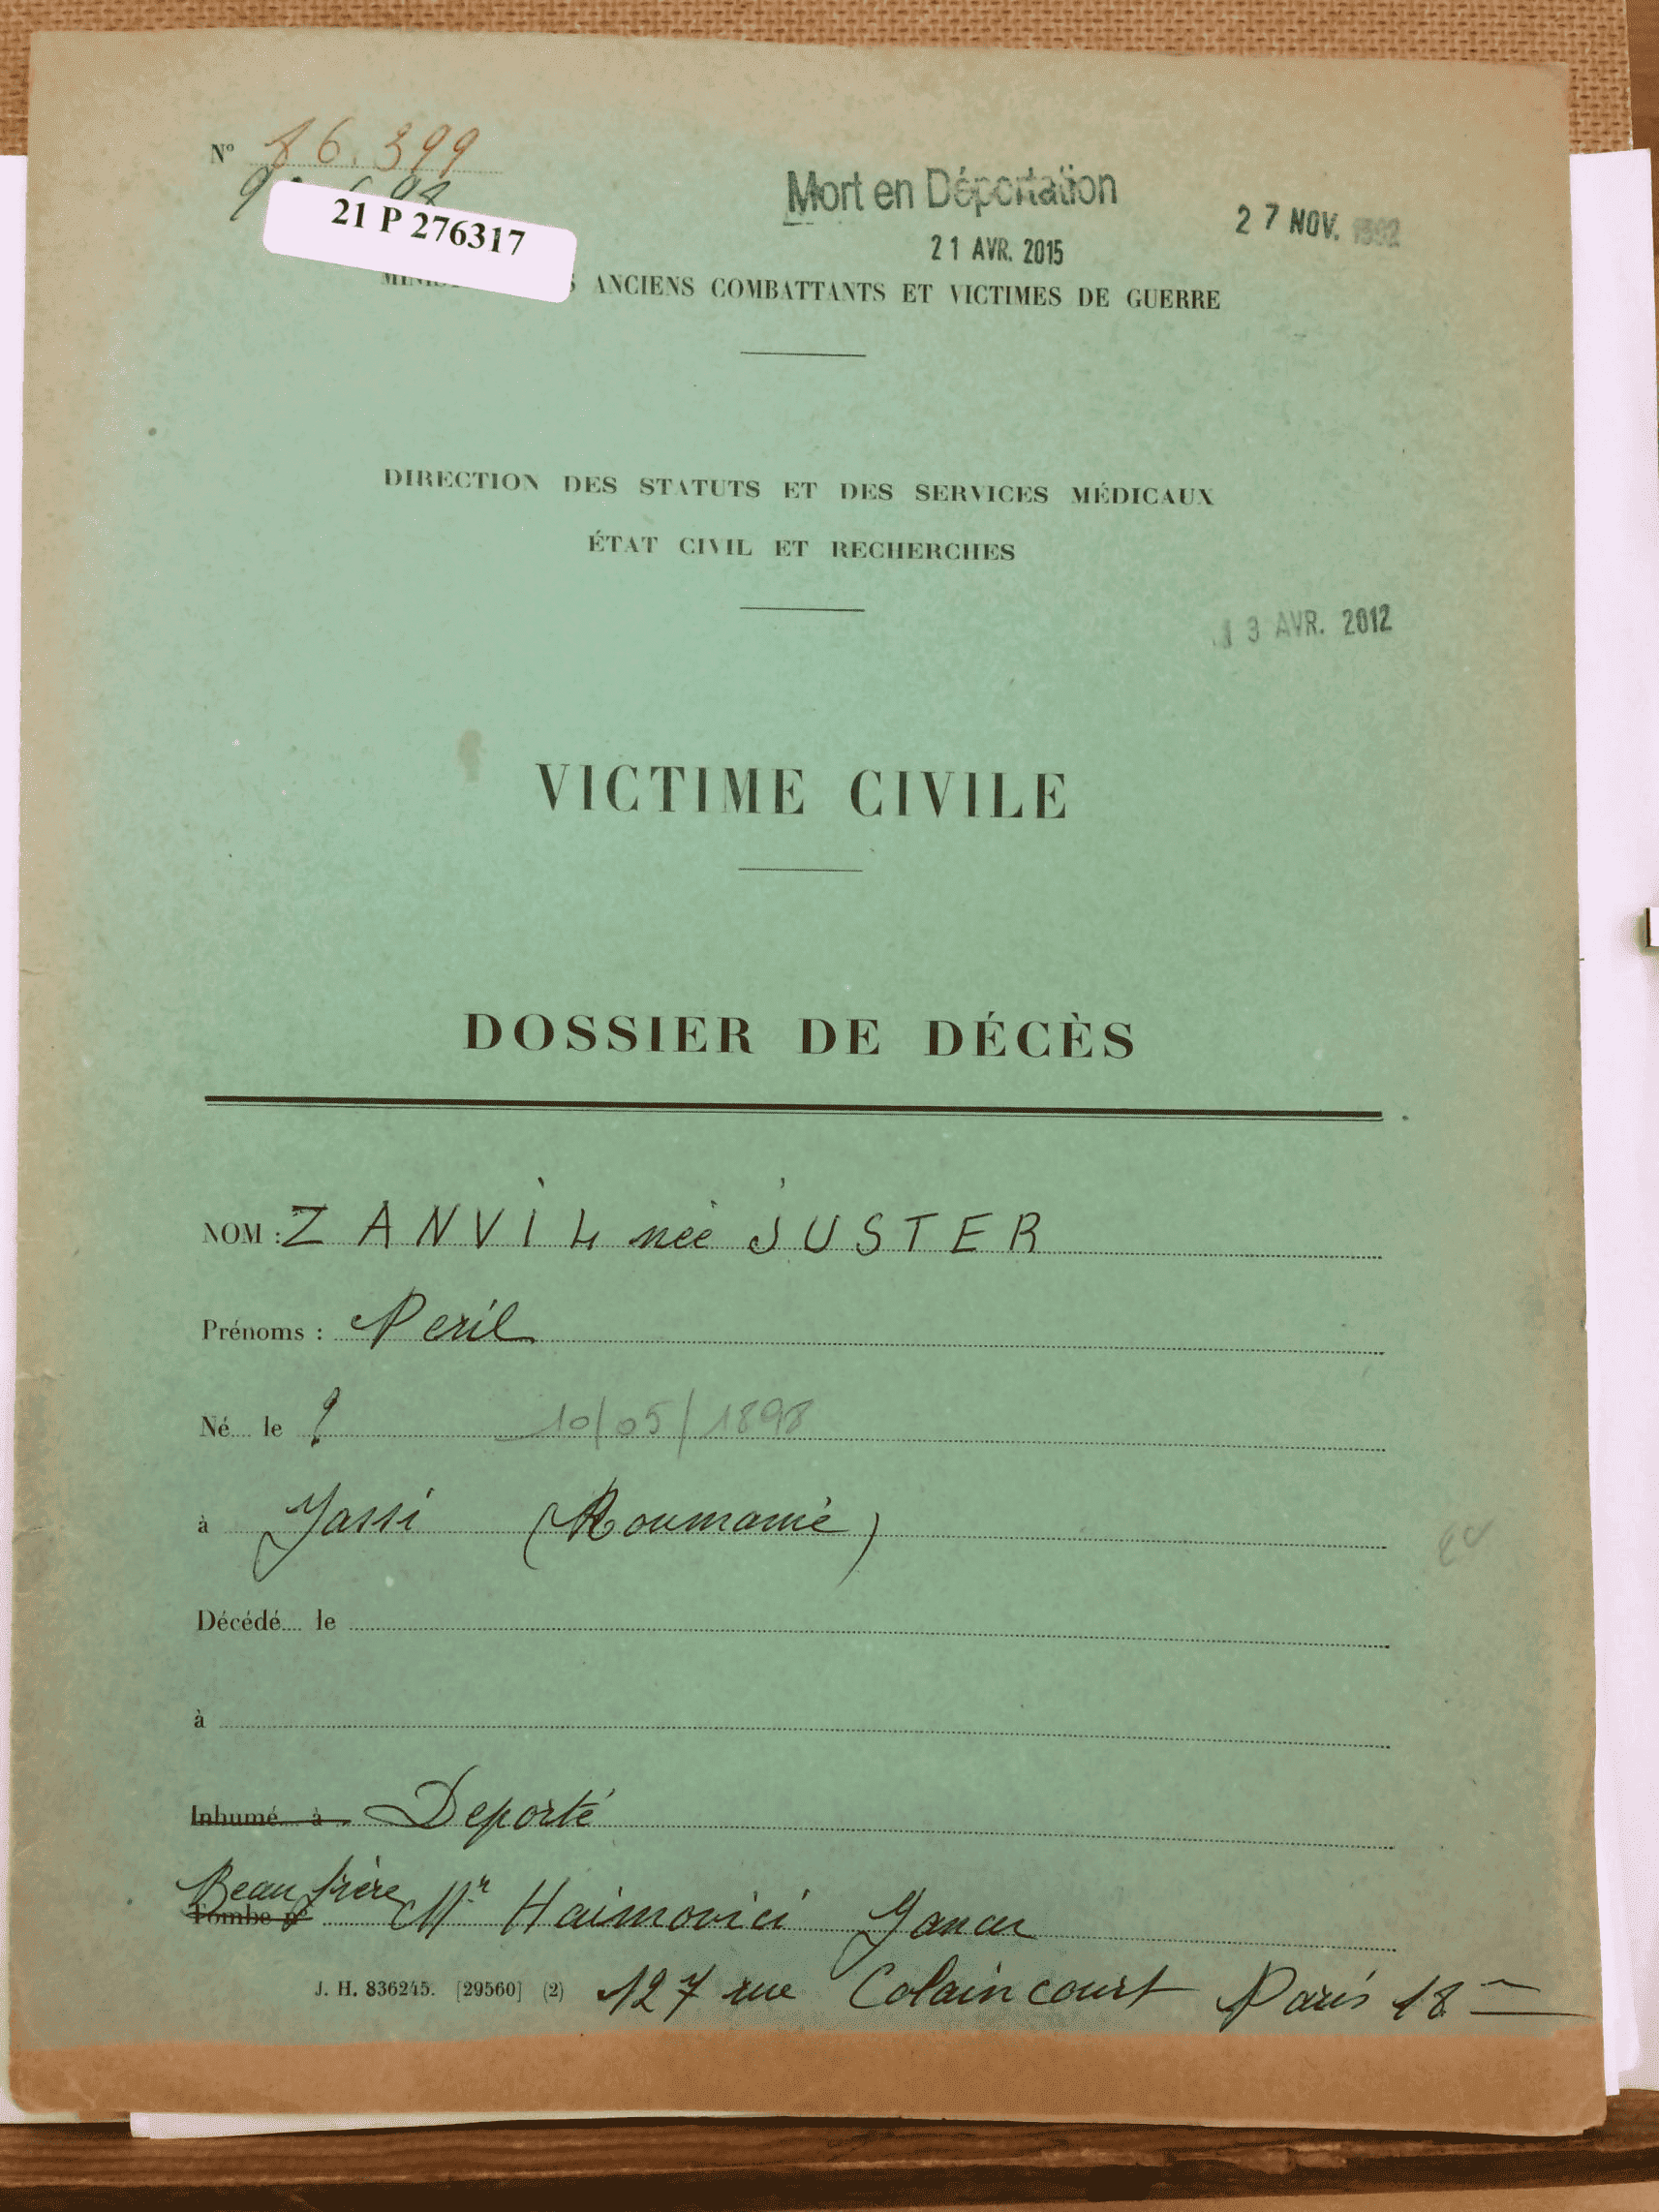 N° 86.399
21 P 276317
Mort en Déportation
21 AVR. 2015
27 NOV. 1992
ANCIENS COMBATTANTS ET VICTIMES DE GUERRE
DIRECTION DES STATUTS ET DES SERVICES MÉDICAUX
ÉTAT CIVIL ET RECHERCHES
13 AVR. 2012
VICTIME CIVILE
DOSSIER DE DÉCÈS
NOM : ZANVIL née JUSTER
Prénoms : Peril
Né le ? 10/05/1898
à Jassi (Roumanie)
Décédé le
à
Inhumé à Deporté
Beau frère
Tombe n° Mr Haimovici Jancu
J. H. 836245. [29560] (2) 127 rue Colaincourt Paris 18